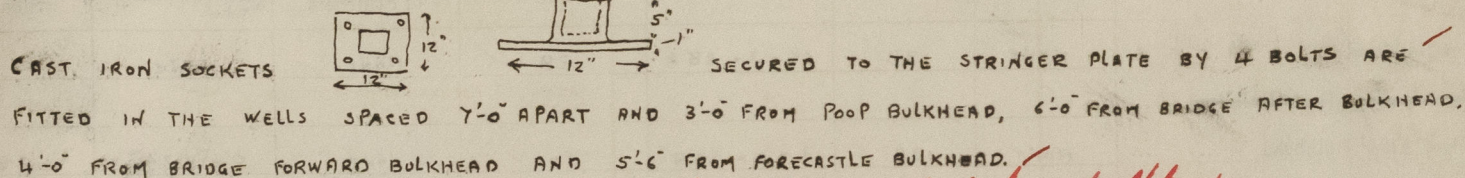 12" 12" 5" 1" 12"
CAST IRON SOCKETS SECURED TO THE STRINGER PLATE BY 4 BOLTS ARE
FITTED IN THE WELLS SPACED 7'-0" APART AND 3'-0" FROM POOP BULKHEAD, 6'-0" FROM BRIDGE AFTER BULKHEAD,
4'-0" FROM BRIDGE FORWARD BULKHEAD AND 5'-6" FROM FORECASTLE BULKHEAD.